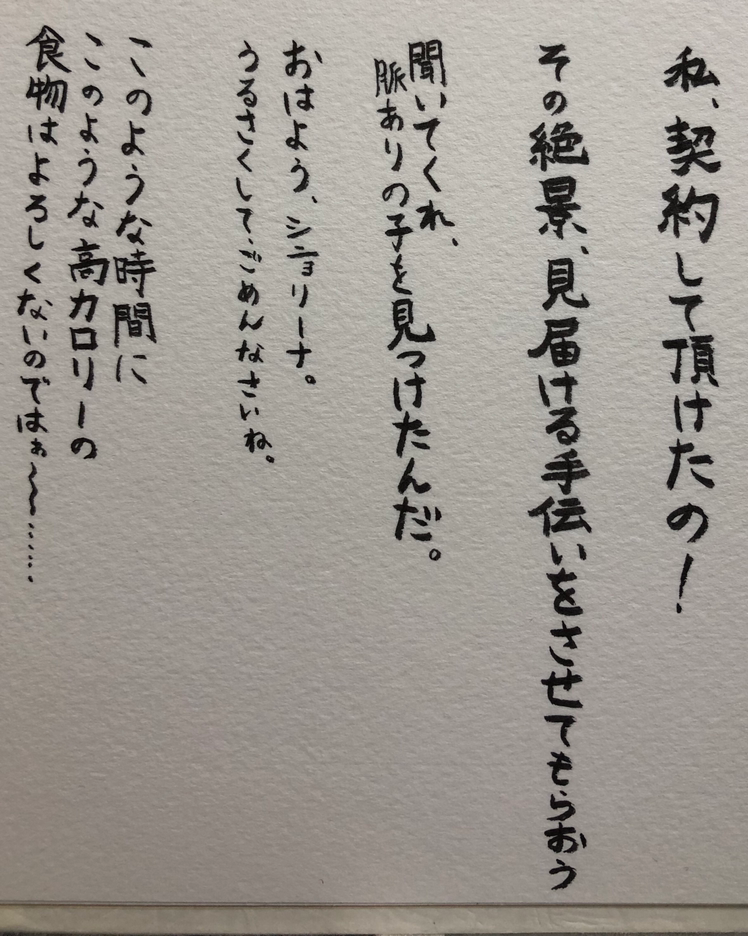 私、契約して頂けたの!
その絶景、見届ける手伝いをさせてもらおう
聞いてくれ、
脈ありの子を見つけたんだ。
おはよう、シニョリーナ。
うるさくして、ごめんなさいね。
このような時間に
このような高カロリーの
食物はよろしくないのではぁ〜〜……